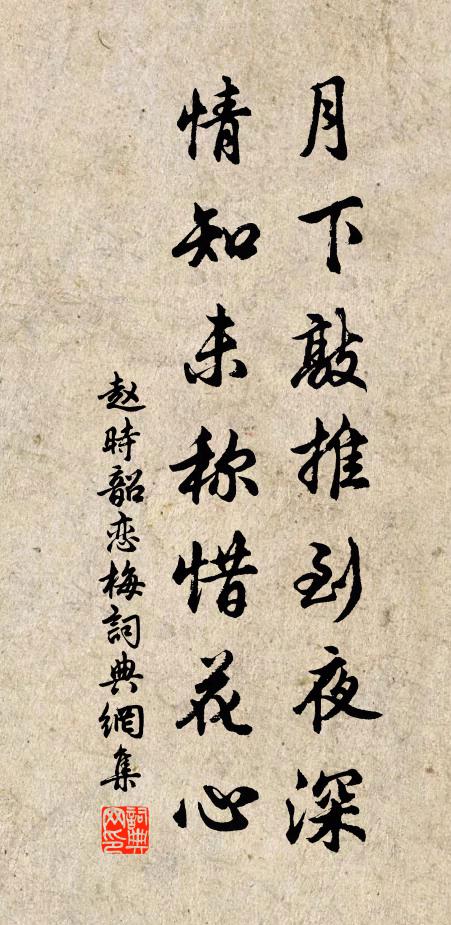 月下敲推到夜深
情知未称惜花心
赵時韶恋梅詞典網集
詞典網印